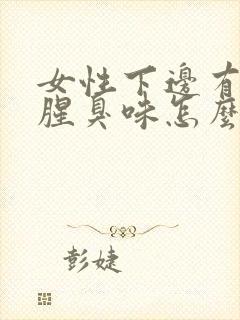 女性下邊有
腥臭味怎麼
彭婕